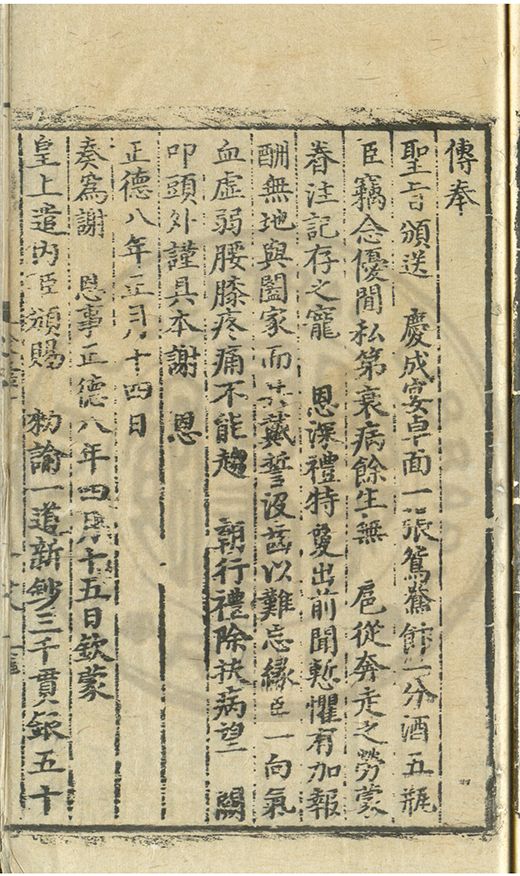 傳奉
聖旨頒送　慶成宴卓面一張鴛鴦飰二分酒五瓶
臣竊念優閒私第衰病餘生無　扈從奔走之勞蒙
眷注記存之寵　恩深禮特𢖍出前聞慙懼有加報
酬無地與闔家而共戴誓沒齒以難忘緣臣一向氣
血虛弱腰膝疼痛不能趨　朝行禮除扶病望　闕
叩頭外謹具本謝　恩
正德八年正月十四日
奏爲謝　恩事正德八年四月十五日欽蒙
皇上遣內臣頒賜　勑諭一道新鈔三千貫銀五十